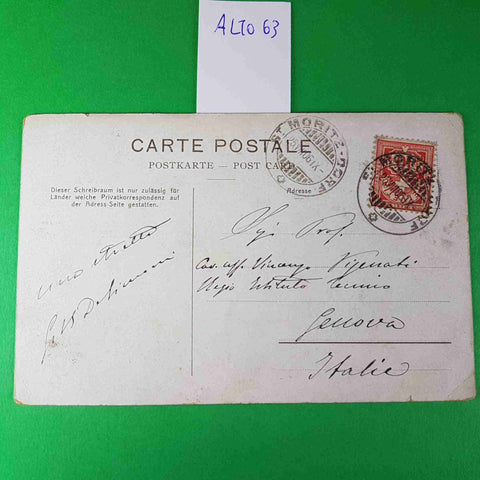 ALTO 63
CARTE POSTALE
POSTKARTE — POST CARD
Adresse
ST. MORITZ-DORF
ST. MORITZ-DORF
Dieser Schreibraum ist nur zulässig für
Länder welche Privatkorrespondenz auf
der Adress-Seite gestatten.
Prof.
Cav. uff. Vincenzo
Regio Istituto Tecnico
Genova
Italie